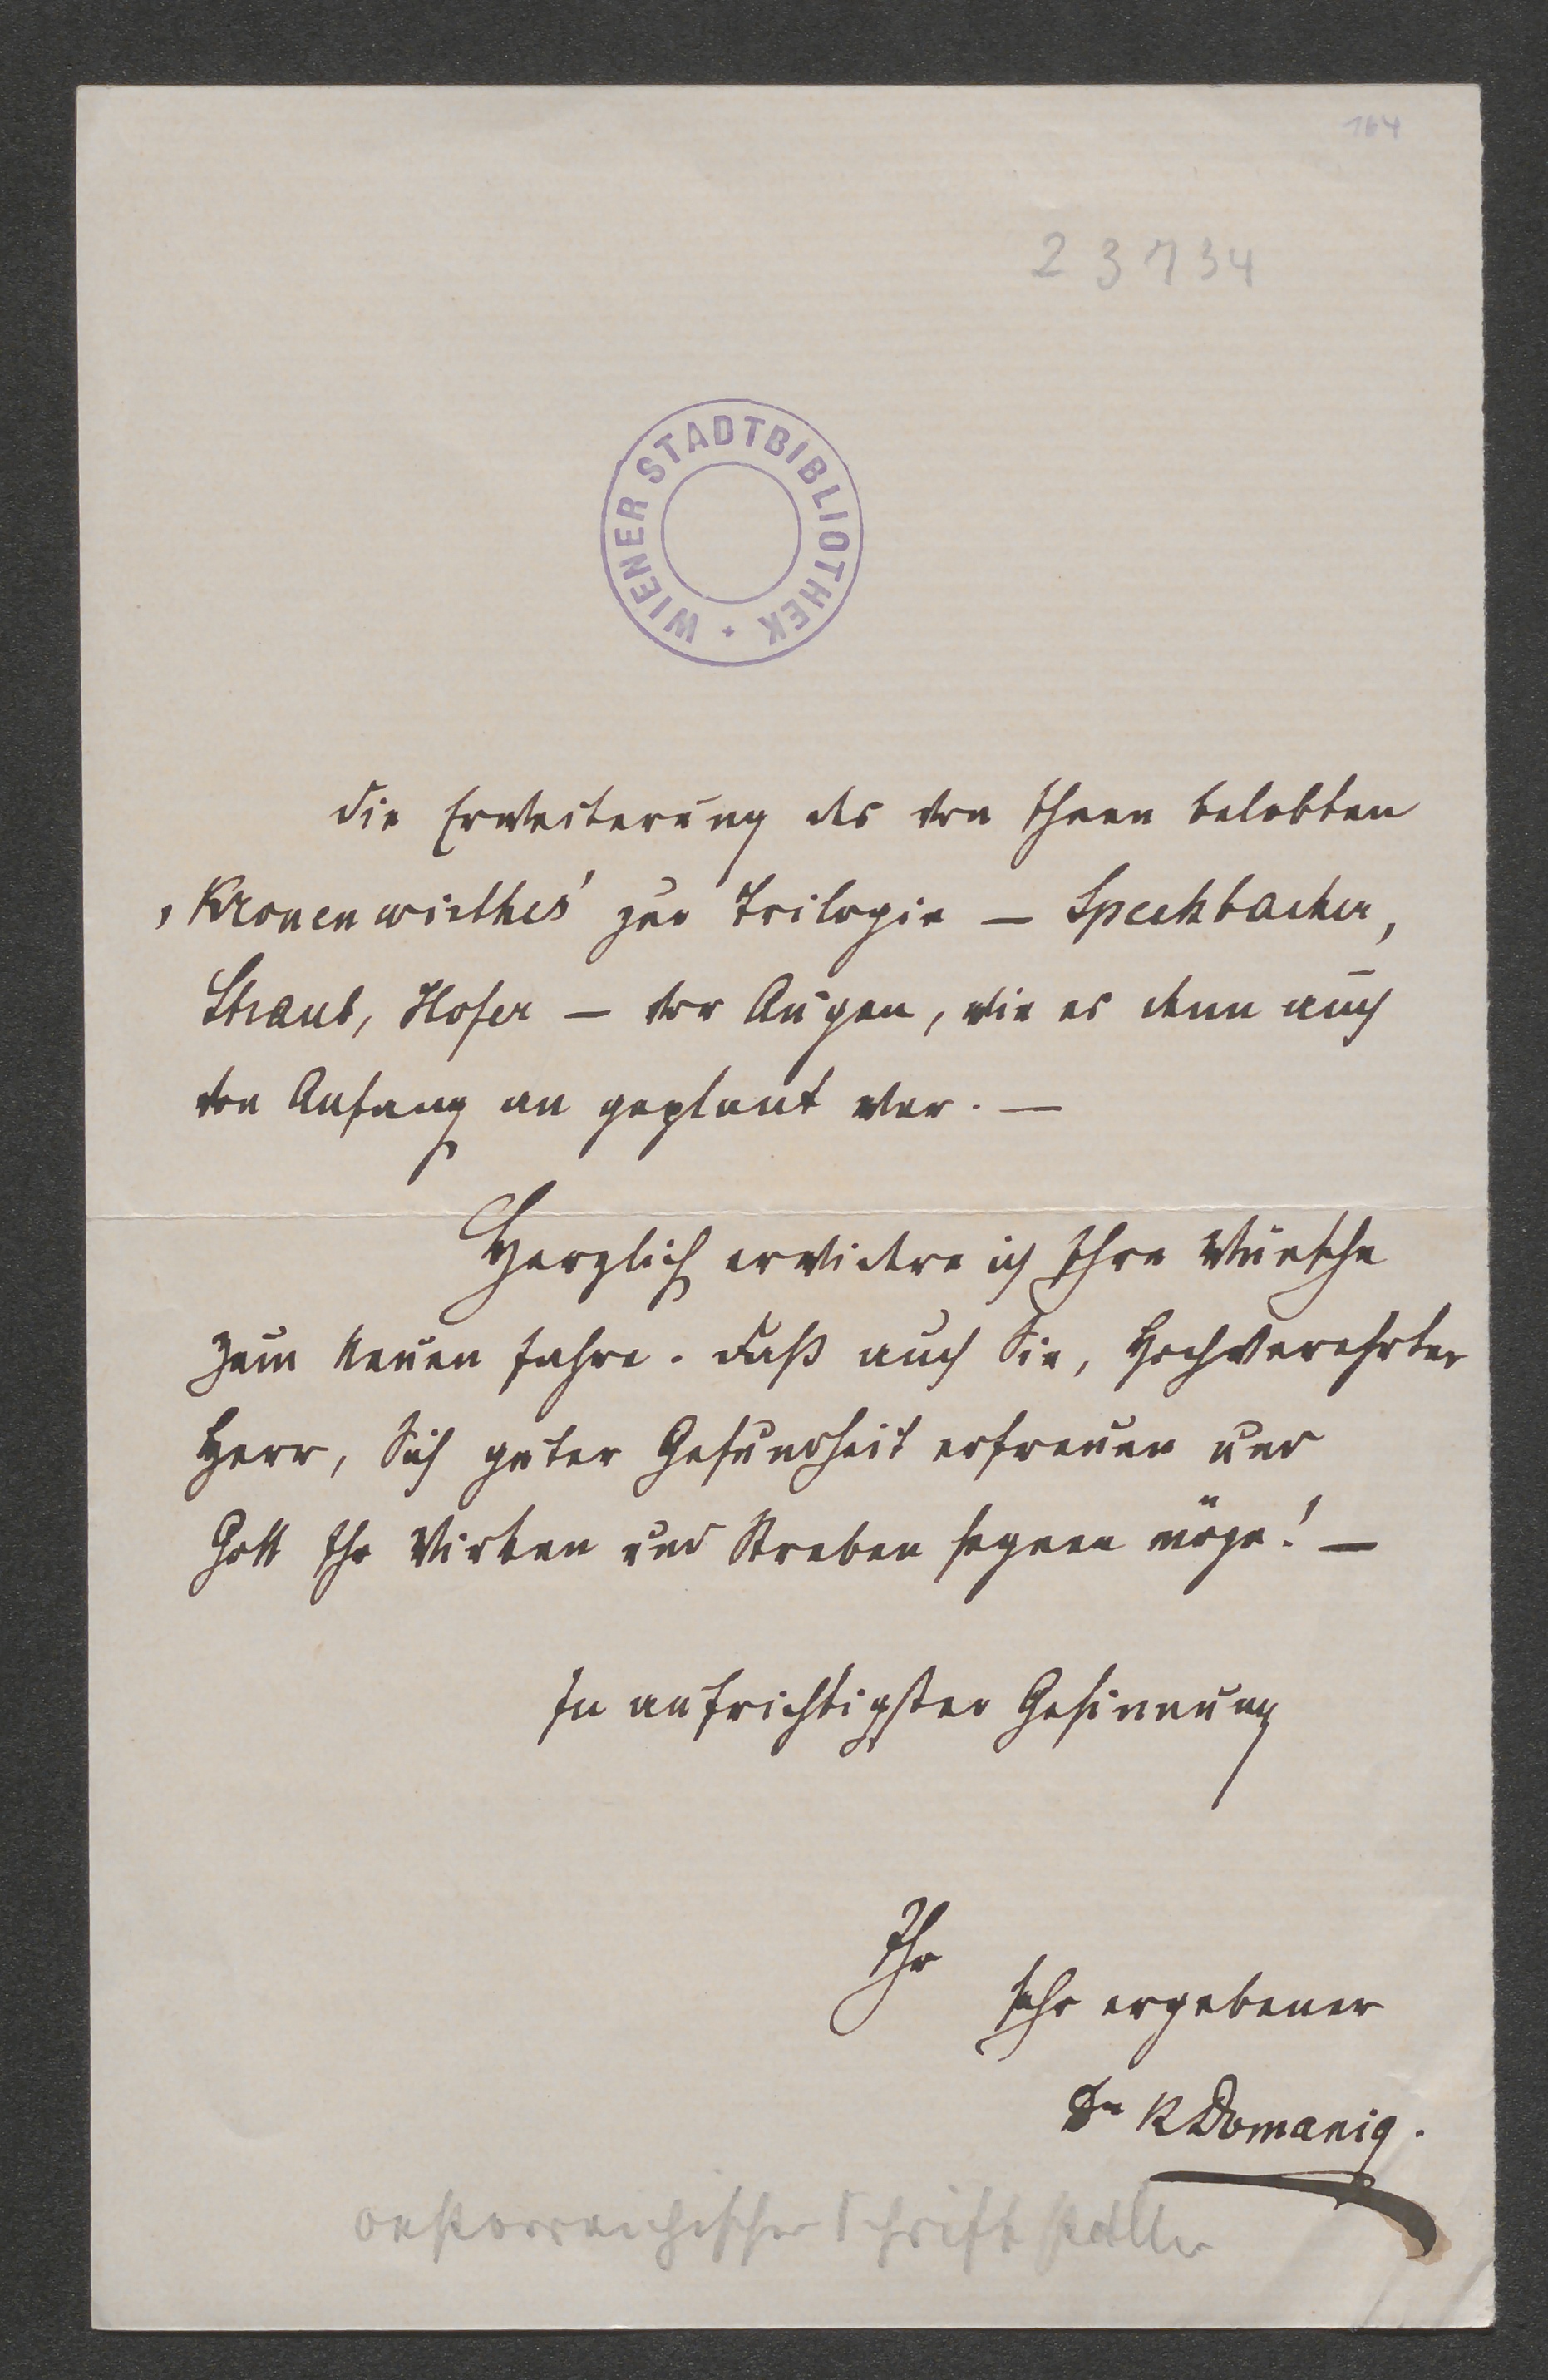 164
23734
WIENER STADTBIBLIOTHEK
die Erweiterung des von Ihnen belobten
‚Kronenwirthes' zur Trilogie — Speckbacher,
Straub, Hofer — vor Augen, wie es denn auch
von Anfang an geplant war. —
Herzlich erwidere ich Ihre Wünsche
zum neuen Jahre. Daß auch Sie, Hochverehrter
Herr, Sich guter Gesundheit erfreuen und
Gott Ihr Wirken und Streben segnen möge! —
In aufrichtigster Gesinnung
Ihr
sehr ergebener
Dr KDomanig.
oesterreichischer Schriftsteller